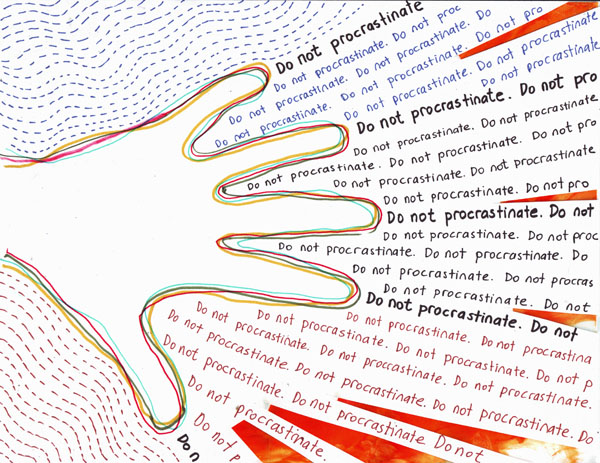 Do not procrastinate
Do not procrastinate. Do not proc
Do not procrastinate. Do not procrastinate. Do
Do not procrastinate. Do not procrastinate. Do not pro
Do not procrastinate. Do not procrastinate
Do not procrastinate
Do not procrastinate. Do not pro
Do not procrastinate. Do not procrastinate.
Do not procrastinate. Do not procrastinate. Do not pro
Do not procrastinate. Do not procrastinate
Do not procrastinate. Do not pro
Do not procrastinate. Do not
Do not procrastinate. Do not proc
Do not procrastinate. Do not procrastinate. Do
Do not procrastinate. Do not procras
Do not procrastinate. Do not
Do not procrastinate. Do not
Do not procrastinate. Do not procrastina
Do not procrastinate. Do not procrastinate. Do not p
Do not procrastinate. Do not procrastinate. Do not procrastinate.
Do not procrastinate. Do not procrastinate. Do not procrastinate. Do
Do not procrastinate. Do not procrastinate Do not
Do not procrastinate.
Do not p
Do n